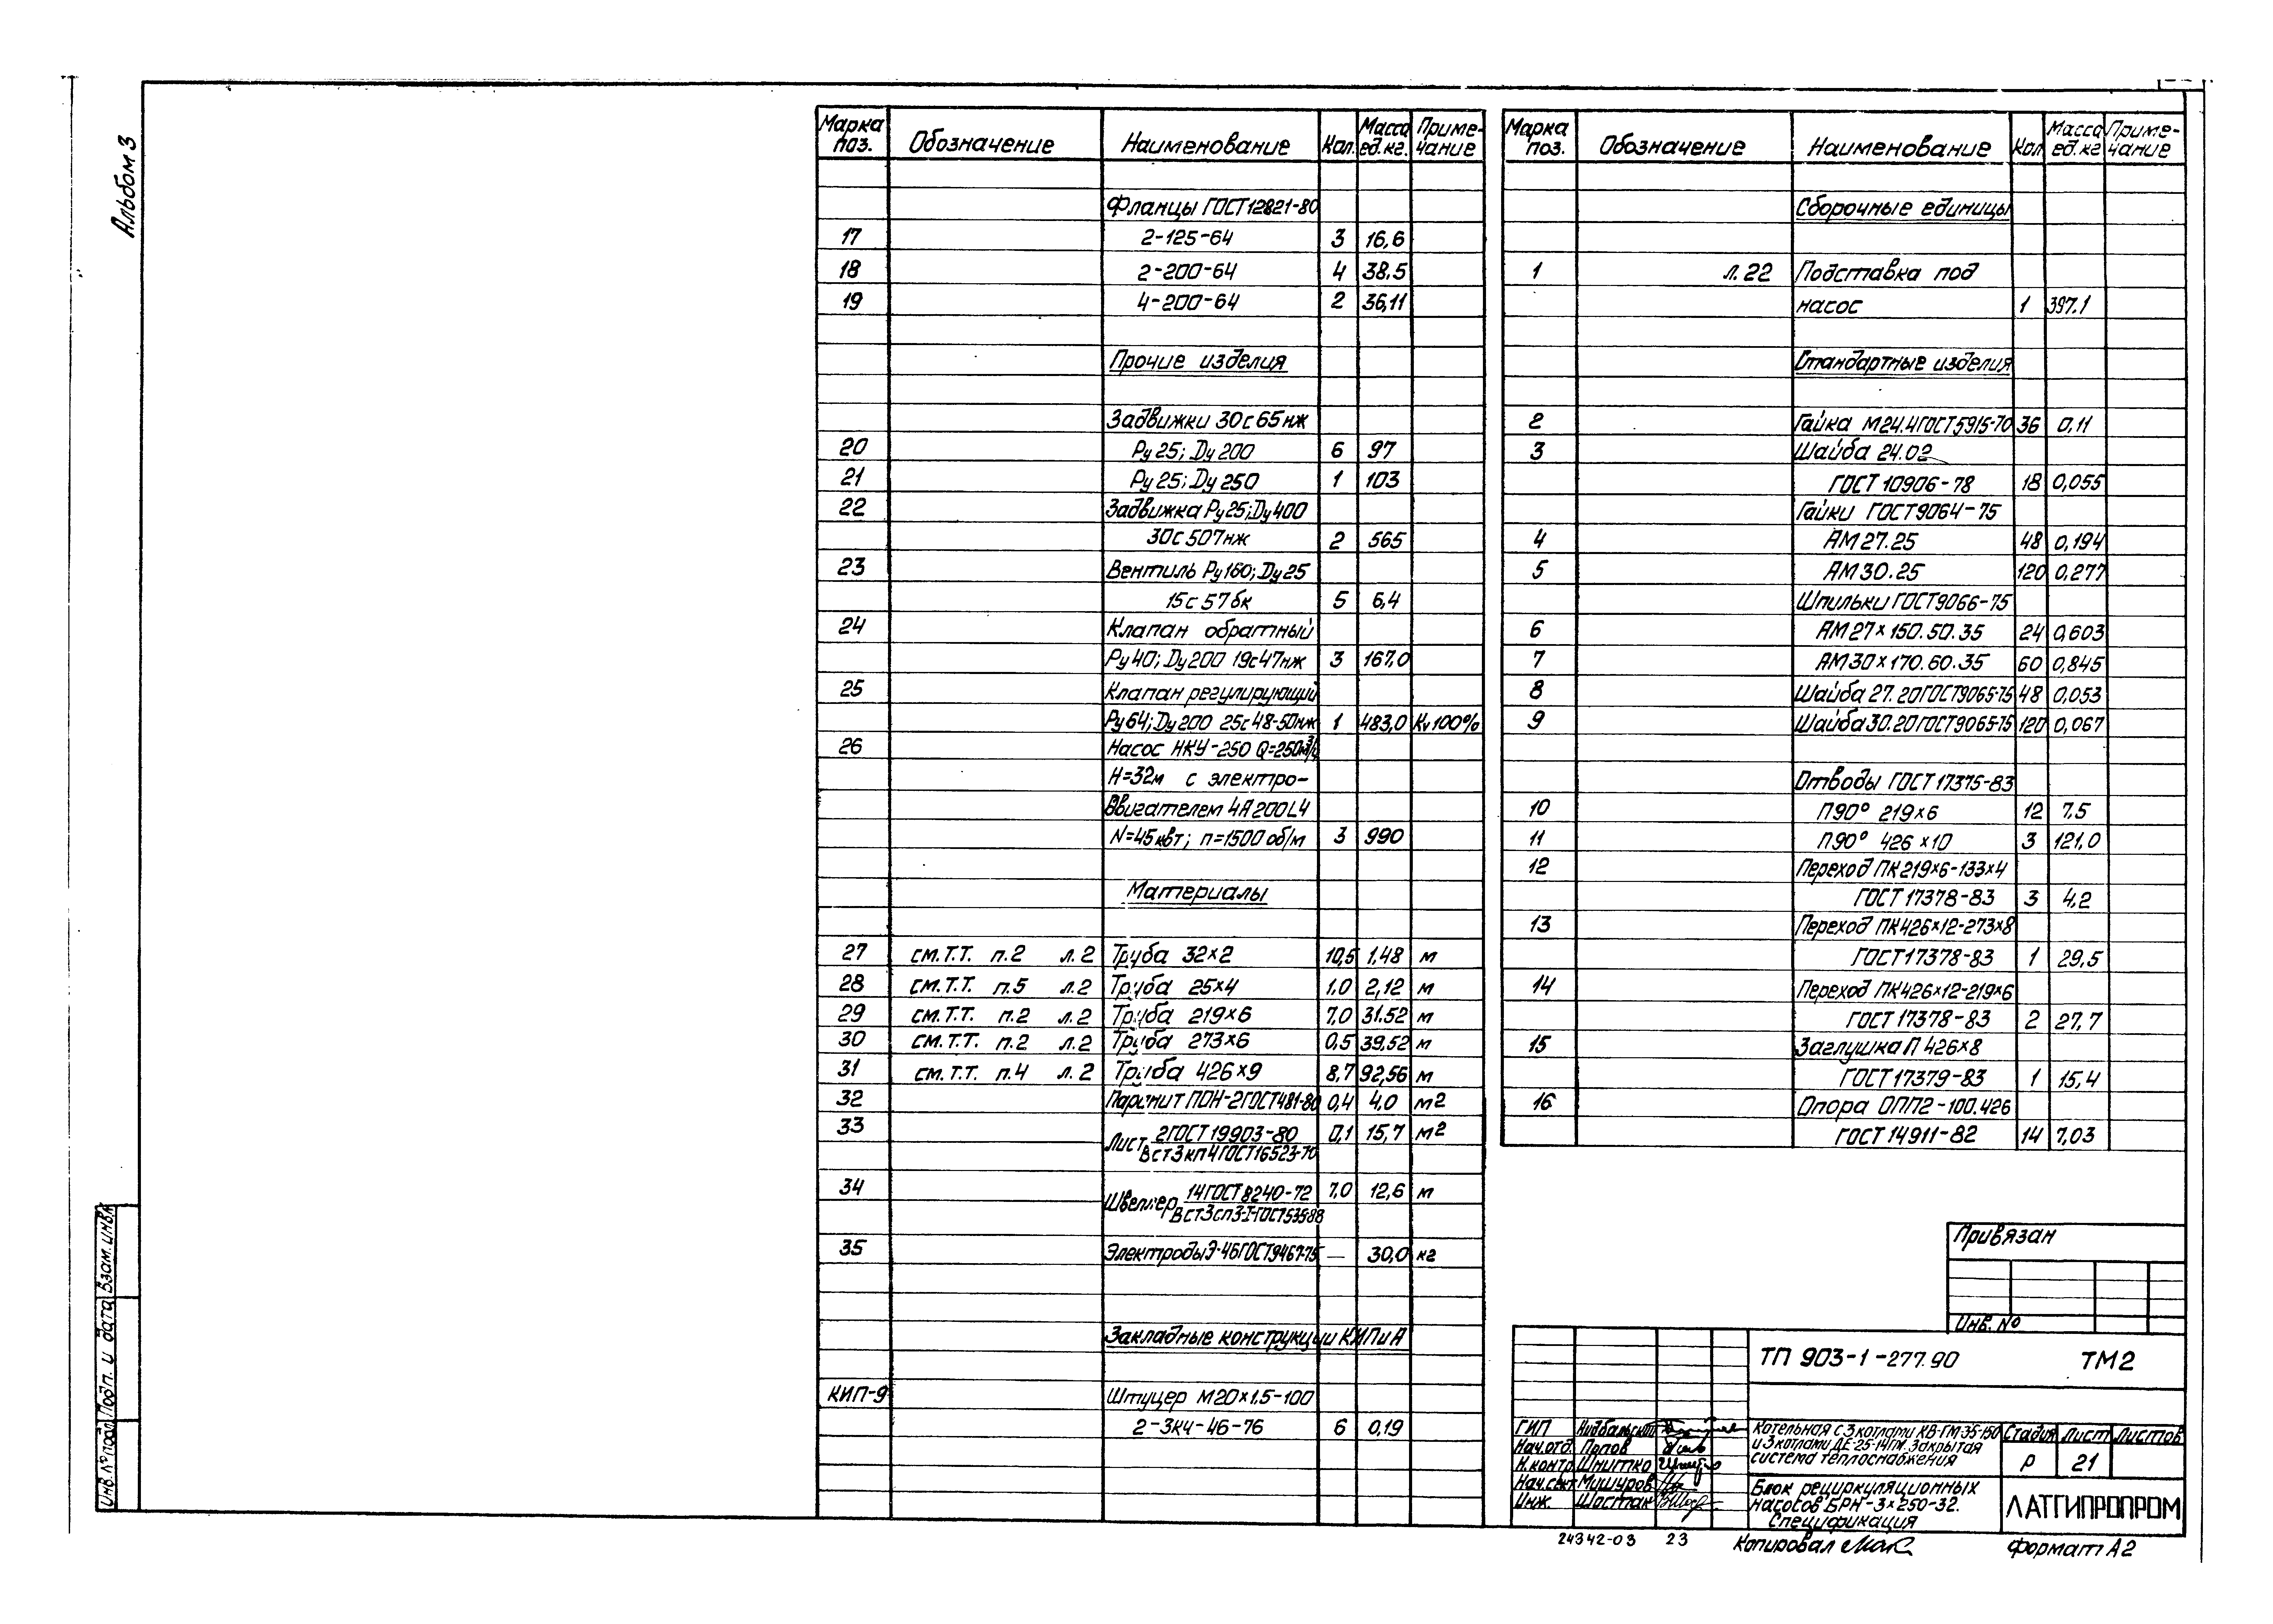 Альбом 3
Марка поз. Обозначение Наименование Кол. Масса ед.кг. Приме-чание
Фланцы ГОСТ12821-80
17 2-125-64 3 16,6
18 2-200-64 4 38.5
19 4-200-64 2 36,11
Прочие изделия
Задвижки 30с65нж
20 Ру25; Ду200 6 97
21 Ру25; Ду250 1 103
22 Задвижка Ру25;Ду400
30с507нж 2 565
23 Вентиль Ру160; Ду25
15с57бк 5 6,4
24 Клапан обратный
Ру40; Ду200 19с47нж 3 167,0
25 Клапан регулирующий
Ру64; Ду200 25с48-50нж 1 483,0 Kv100%
26 Насос НКУ-250 Q=250м³/ч
Н=32м с электро-
двигателем 4А200L4
N=45квт; n=1500об/м 3 990
Материалы
27 см.Т.Т. п.2 л.2 Труба 32×2 10,5 1.48 м
28 см.Т.Т. п.5 л.2 Труба 25×4 1,0 2,12 м
29 см.Т.Т. п.2 л.2 Труба 219×6 7,0 31.52 м
30 см.Т.Т. п.2 л.2 Труба 273×6 0,5 39,52 м
31 см.Т.Т. п.4 л.2 Труба 426×9 8,7 92,56 м
32 Паронит ПОН-2ГОСТ481-80 0,4 4,0 м2
33 Лист 2ГОСТ19903-80 0,1 15,7 м2
Вст3кп4ГОСТ16523-70
34 Швеллер 14ГОСТ8240-72 7,0 12,6 м
Вст3сп3-I-ГОСТ535-88
35 Электроды Э-46ГОСТ9467-75 — 30,0 кг
Закладные конструкции КИПиА
КИП-9 Штуцер М20×1.5-100
2-3к4-46-76 6 0,19
Марка поз. Обозначение Наименование Кол Масса ед.кг Приме-чание
Сборочные единицы
1 л.22 Подставка под
насос 1 397.1
Стандартные изделия
2 Гайка М24.4ГОСТ5915-70 36 0,11
3 Шайба 24.02
ГОСТ 10906-78 18 0,055
Гайки ГОСТ9064-75
4 АМ27.25 48 0,194
5 АМ30.25 120 0,277
Шпильки ГОСТ9066-75
6 АМ27×150.50.35 24 0,603
7 АМ30×170.60.35 60 0,845
8 Шайба 27.20ГОСТ9065-75 48 0,053
9 Шайба30.20ГОСТ9065-75 120 0,067
Отводы ГОСТ17375-83
10 П90° 219×6 12 7,5
11 П90° 426×10 3 121,0
12 Переход ПК219×6-133×4
ГОСТ17378-83 3 4,2
13 Переход ПК426×12-273×8
ГОСТ17378-83 1 29,5
14 Переход ПК426×12-219×6
ГОСТ17378-83 2 27,7
15 Заглушка П 426×8
ГОСТ17379-83 1 15,4
16 Опора ОПП2-100.426
ГОСТ14911-82 14 7,03
Привязан
Инв. №
ТП 903-1-277.90 ТМ2
ГИП
Нач.отд. Попов
Н.контр Шнитко
Нач.сект Мишуров
Инж. Шостак
Котельная с 3 котлами КВ-ГМ-35-150
и 3 котлами ДЕ-25-14ГМ. Закрытая
система теплоснабжения
Стадия Лист Листов
Р 21
Блок рециркуляционных
насосов БРН-3×250-32.
Спецификация
ЛАТГИПРОПРОМ
24342-03 23
Копировал
Формат А2
Инв.№подл. Подп. и дата Взам.инв.№